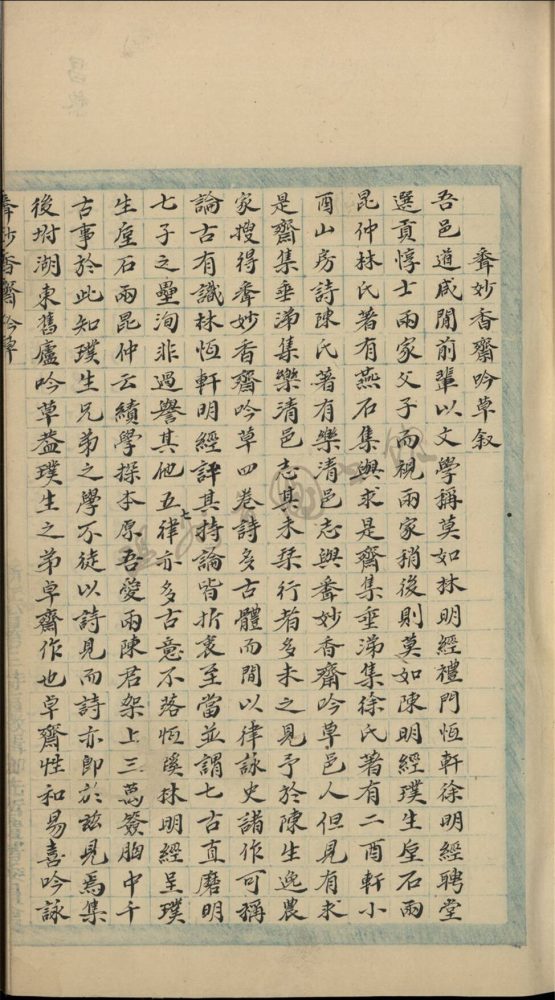 馡妙香齋吟草叙
吾邑道咸間前輩以文學稱莫如林明經禮門恆軒徐明經聘堂
選貢惇士兩家父子而視兩家稍後則莫如陳明經璞生 石兩
昆仲林氏著有燕石集與求是齋集垂涕集徐氏著有二酉軒小
酉山房詩陳氏著有樂清邑志與 妙香齋吟草邑人但見有求
是齋集垂涕集樂清邑志其未琹行者多未之見予於陳生逸農
家搜得 妙香齋吟草四卷詩多古體而間以律詠史諸作可稱
論古有識林恆軒明經評其持論皆折衷至當並謂七古直磨明
七子之壘洵非過譽其他五七律亦多古意不落恆蹊林明經呈璞
生 石兩昆仲云績學探本原吾愛兩陳君架上三萬簽胸中千
古事於此知璞生兄弟之學不徒以詩見而詩亦即於兹見焉集
後坿湖東舊廬吟草葢璞生之弟卓齋作也卓齋性和易喜吟詠
妙香齋吟草